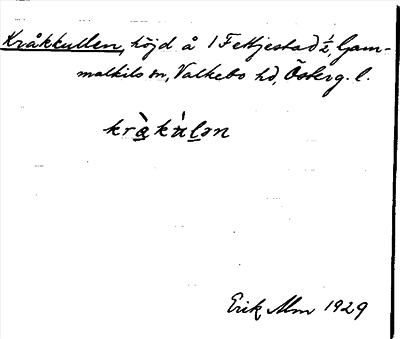 Kråkkullen, höjd å 1 Fettjestad ½, Gam-
malkils sn, Valkebo hd, Österg. l.
kr̀a̲kú̀l̲ən
Erik Alm 1929